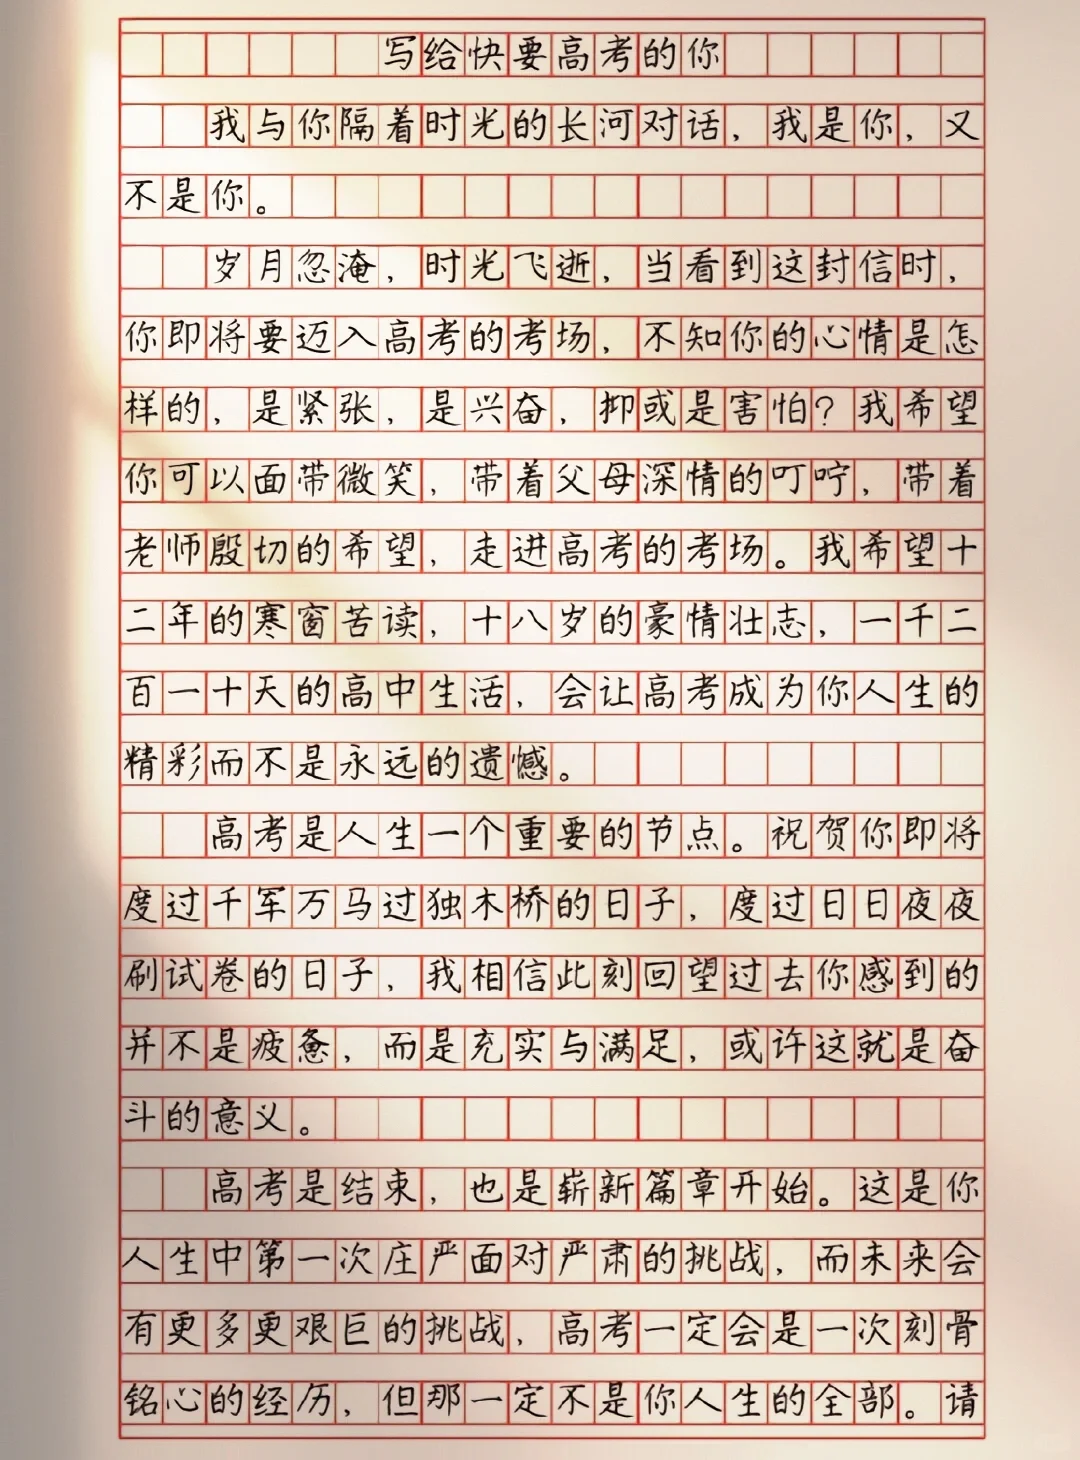 写给快要高考的你
我与你隔着时光的长河对话，我是你，又
不是你。
岁月忽淹，时光飞逝，当看到这封信时，
你即将要迈入高考的考场，不知你的心情是怎
样的，是紧张，是兴奋，抑或是害怕？我希望
你可以面带微笑，带着父母深情的叮咛，带着
老师殷切的希望，走进高考的考场。我希望十
二年的寒窗苦读，十八岁的豪情壮志，一千二
百一十天的高中生活，会让高考成为你人生的
精彩而不是永远的遗憾。
高考是人生一个重要的节点。祝贺你即将
度过千军万马过独木桥的日子，度过日日夜夜
刷试卷的日子，我相信此刻回望过去你感到的
并不是疲惫，而是充实与满足，或许这就是奋
斗的意义。
高考是结束，也是崭新篇章开始。这是你
人生中第一次庄严面对严肃的挑战，而未来会
有更多更艰巨的挑战，高考一定会是一次刻骨
铭心的经历，但那一定不是你人生的全部。请